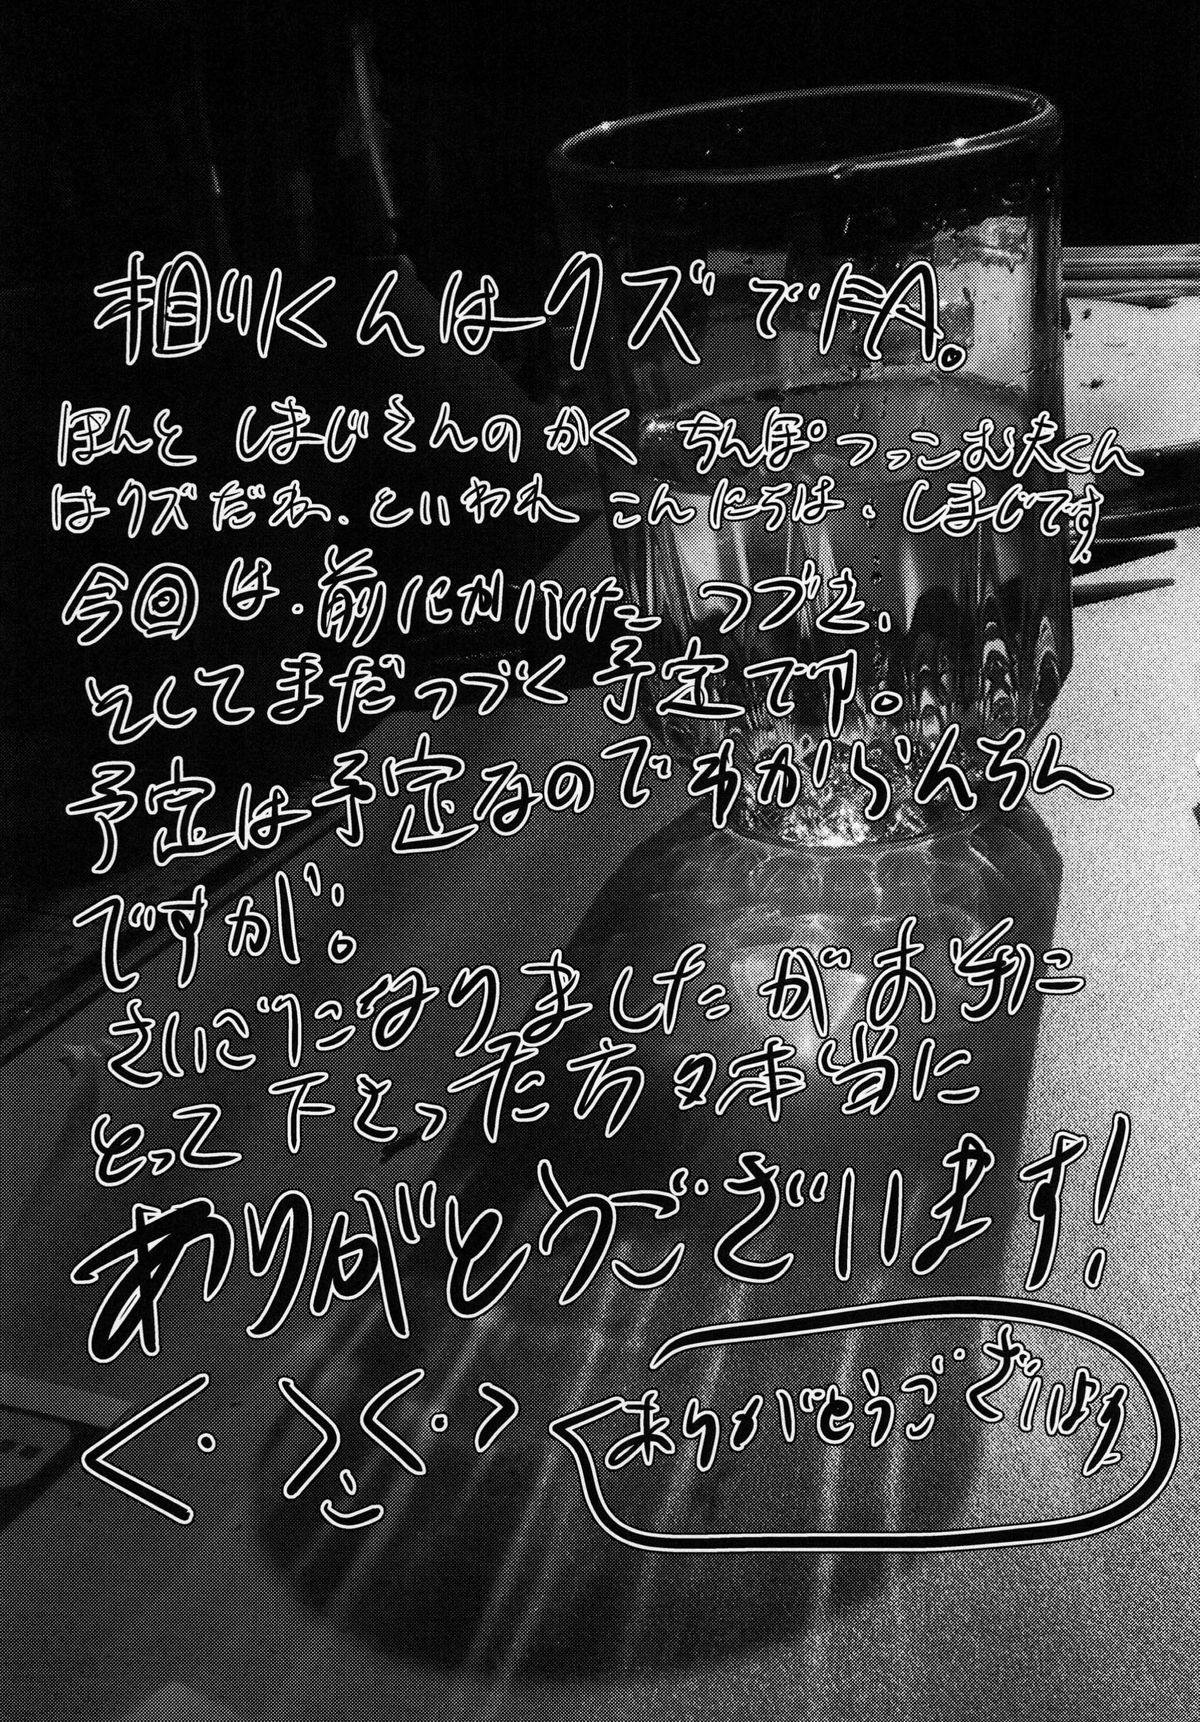 相川くんはクズでFA。
ほんと しまじさんのかく ちんぽつっこむ夫くん
はクズだね、といわれ こんにちは、しまじです。
今回は、前にかいた つづき、
そしてまだつづく予定です。
予定は予定なのでわからんちん
ですが:。
さいごになりましたがお手に
とって下さった方々本当に
ありがとうございます!
ありがとうございます